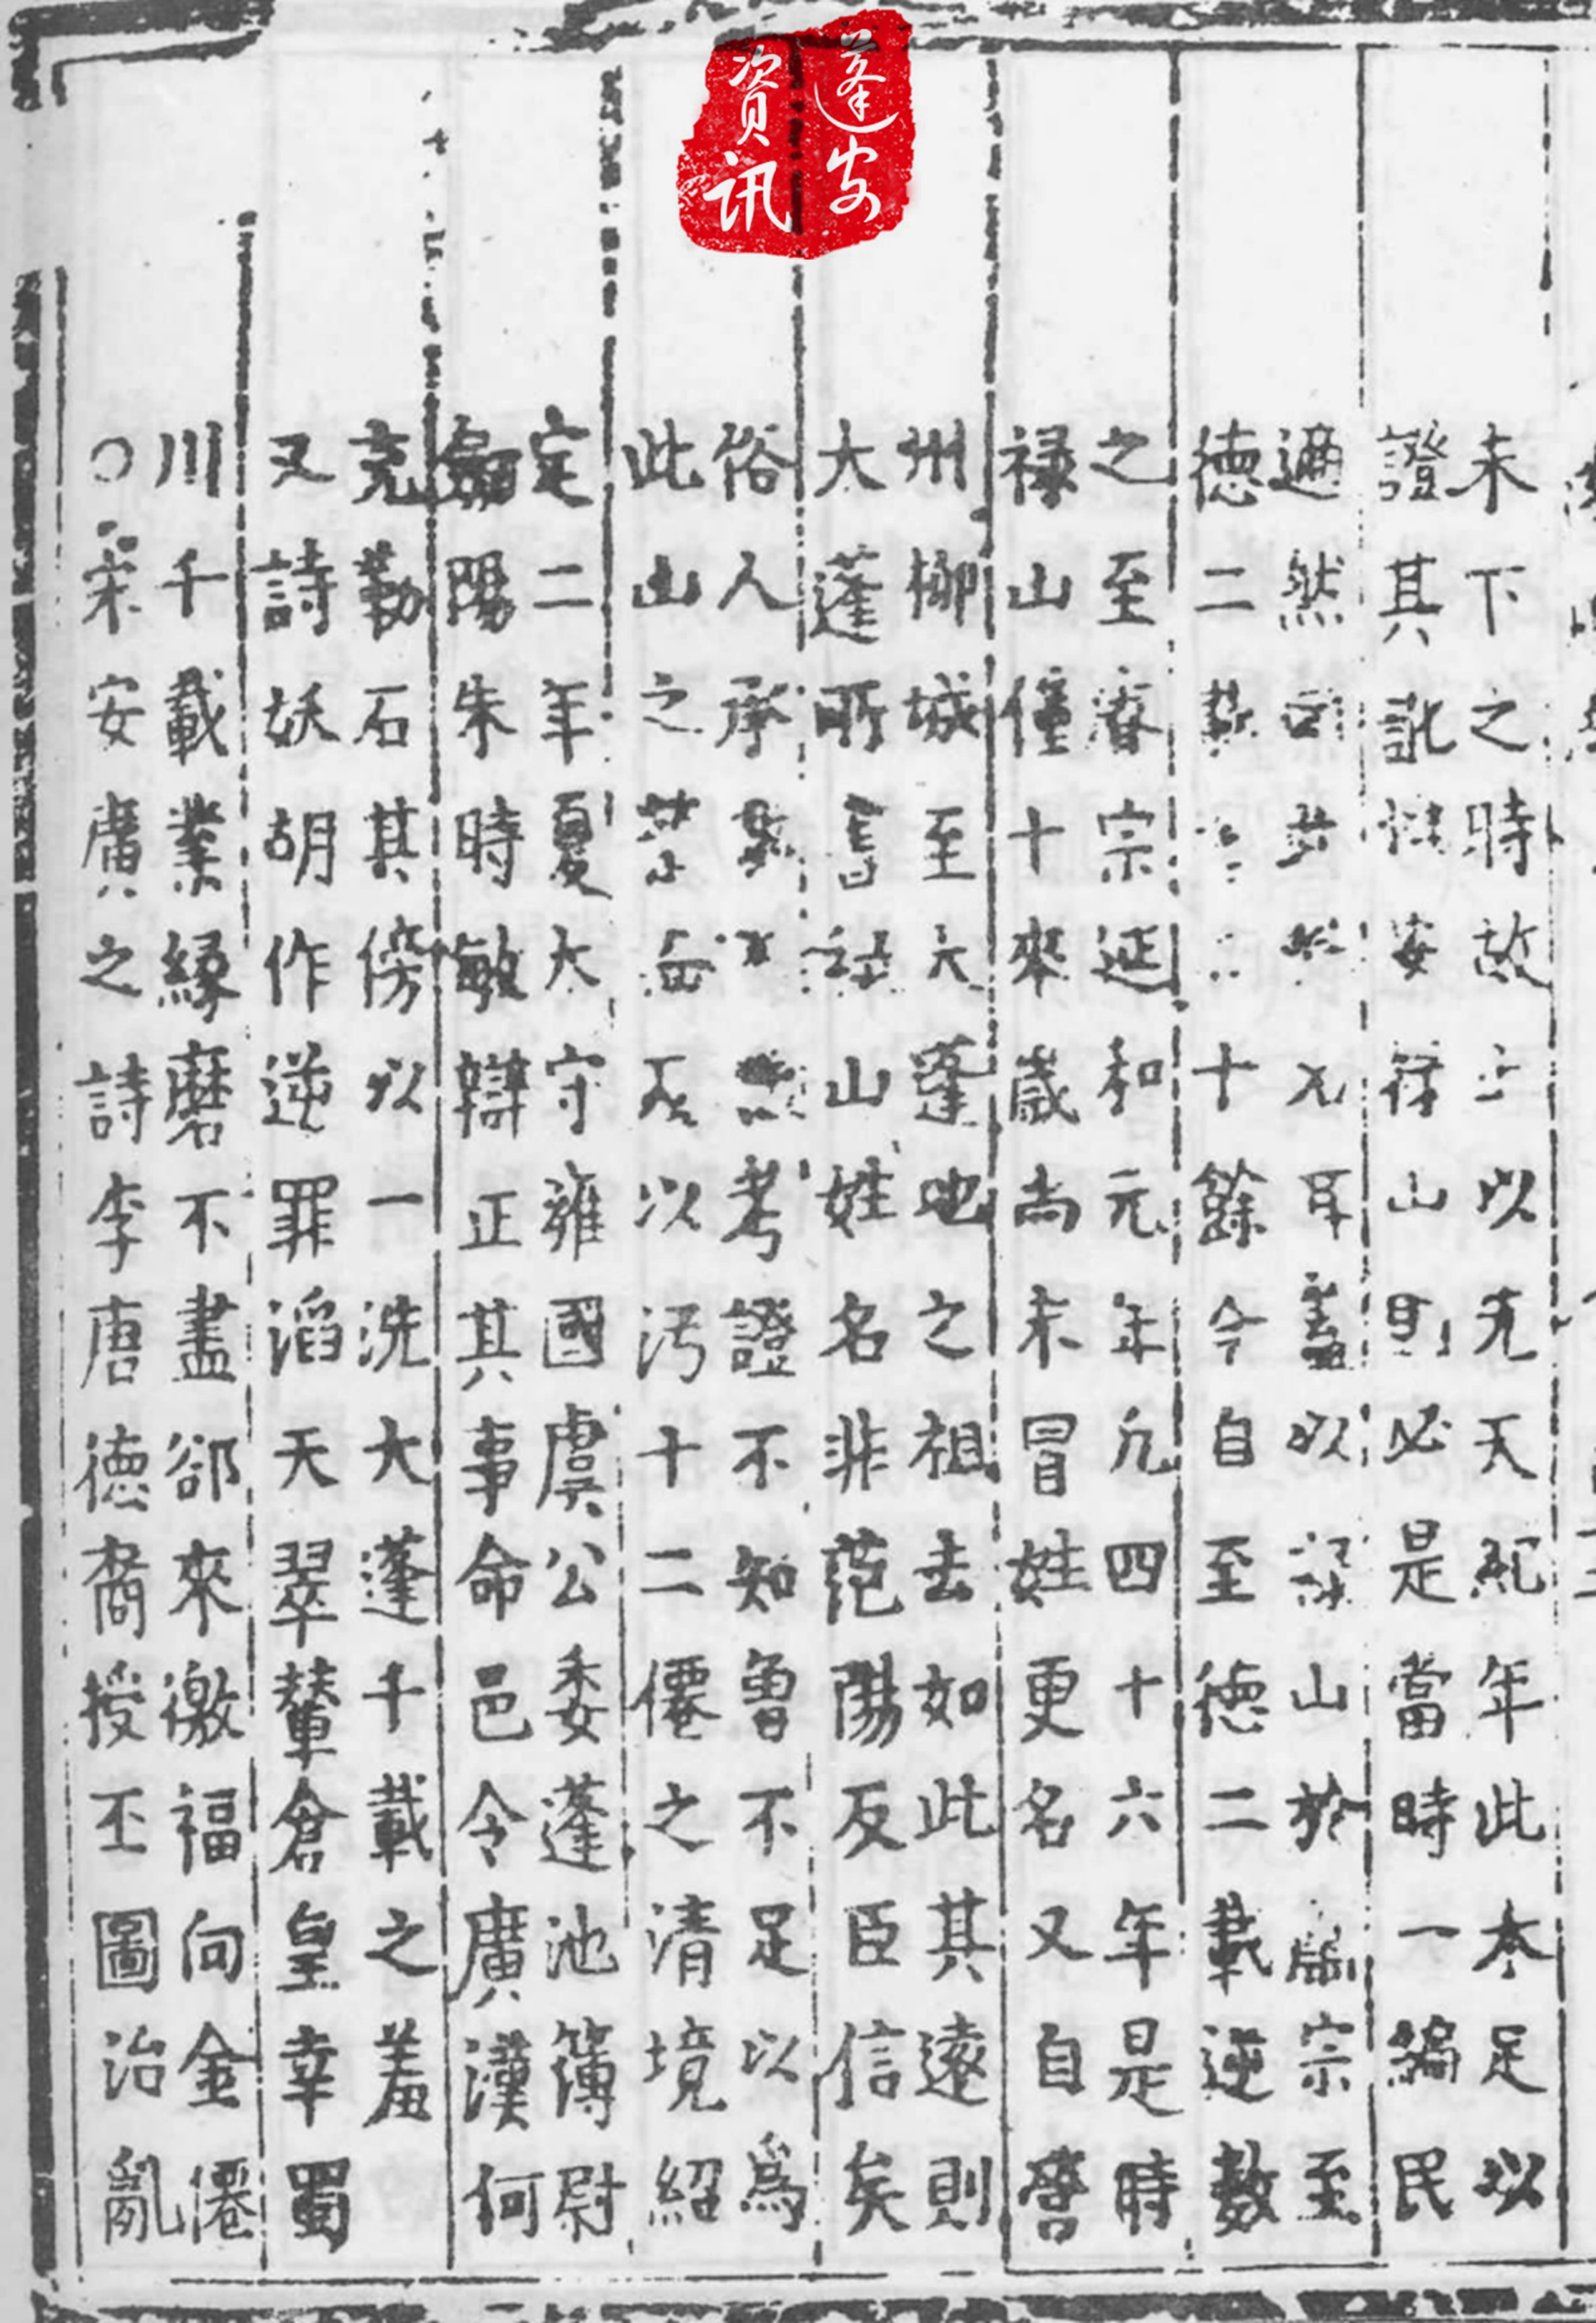 蓬安
資訊
未下之時故 以无天紀年此本足以
證其訛 安祿山則必是當時一編民
邇然 耳蓋以祿山於 宗至
德二載 十餘今自至德二載逆數
之至睿宗延和元年凡四十六年是時
祿山僅十來歲尚未冒姓更名又自營
州柳城至大蓬池之祖去如此其遠則
大蓬所 山姓名非范陽反臣信矣
俗人承 考證不知曾不足以為
此山之 以汚十二僊之清境紹
定二年夏太守雍國虞公委蓬池簿尉
陽朱時敏辯正其事命邑令廣漢何
克勤石其傍以一洗大蓬千載之羞
又詩妖胡作逆罪滔天翠輦倉皇幸蜀
川千載業緣磨不盡卻來激福向金僊
○宋安廣之詩李唐德裔授丕圖治亂